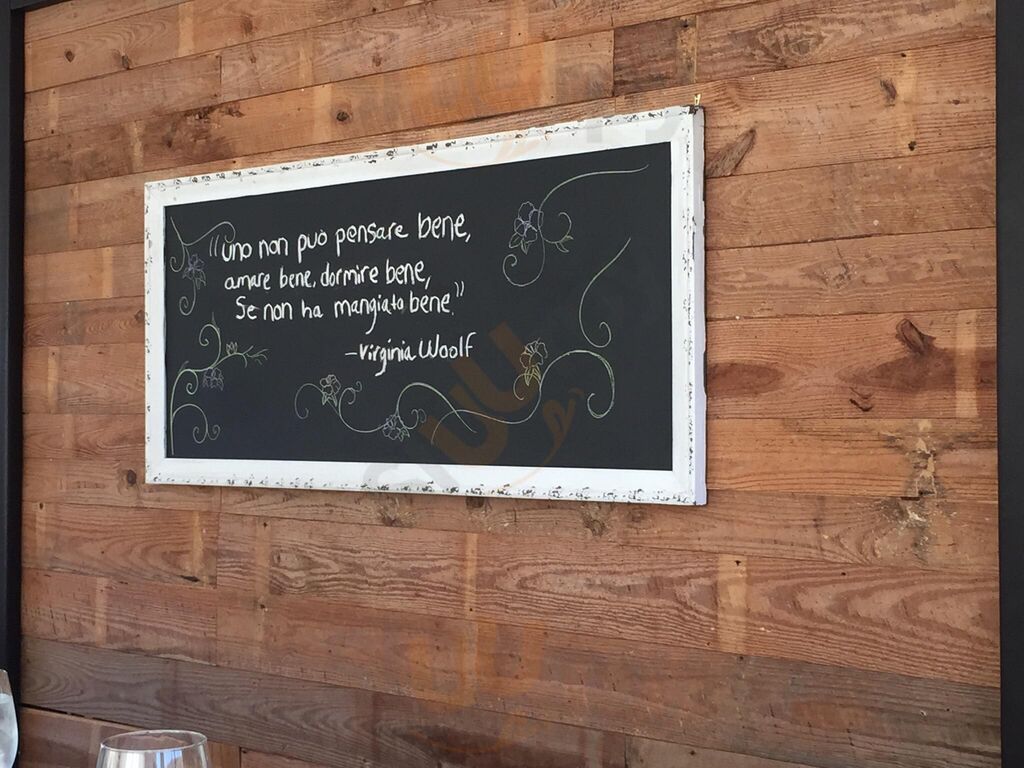 "uno non può pensare bene,
amare bene, dormire bene,
Se non ha mangiato bene."
-Virginia Woolf